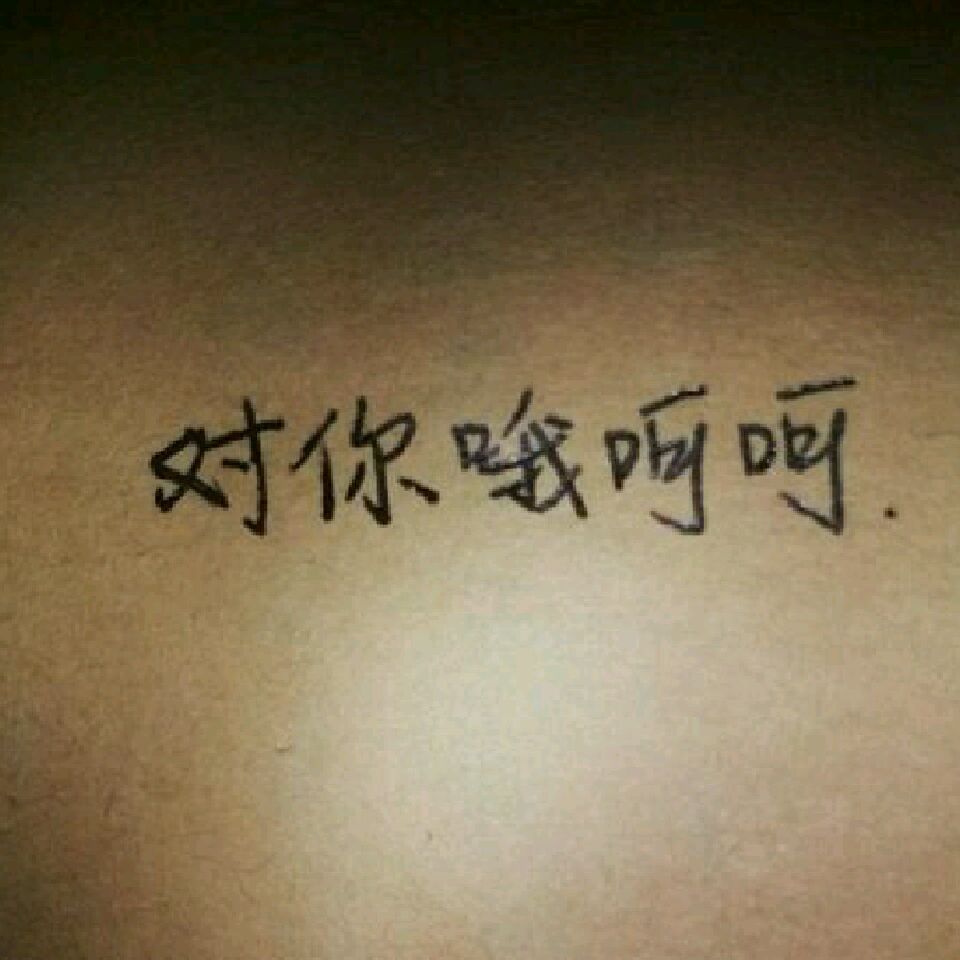 对你哦呵呵.